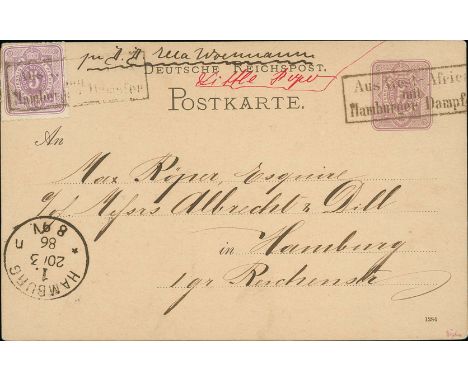 per S. S. Ella Woermann
DEUTSCHE REICHSPOST.
Little Popo
POSTKARTE.
Aus West-Afrika
mit
Hamburger Dampf
Hamburger
An
Max Röper, Esquire
c/o Messrs Albrecht & Dill
in Hamburg
1 gr Reichenstr
HAMBURG
1.
20/3
86
8-9 N.
1284